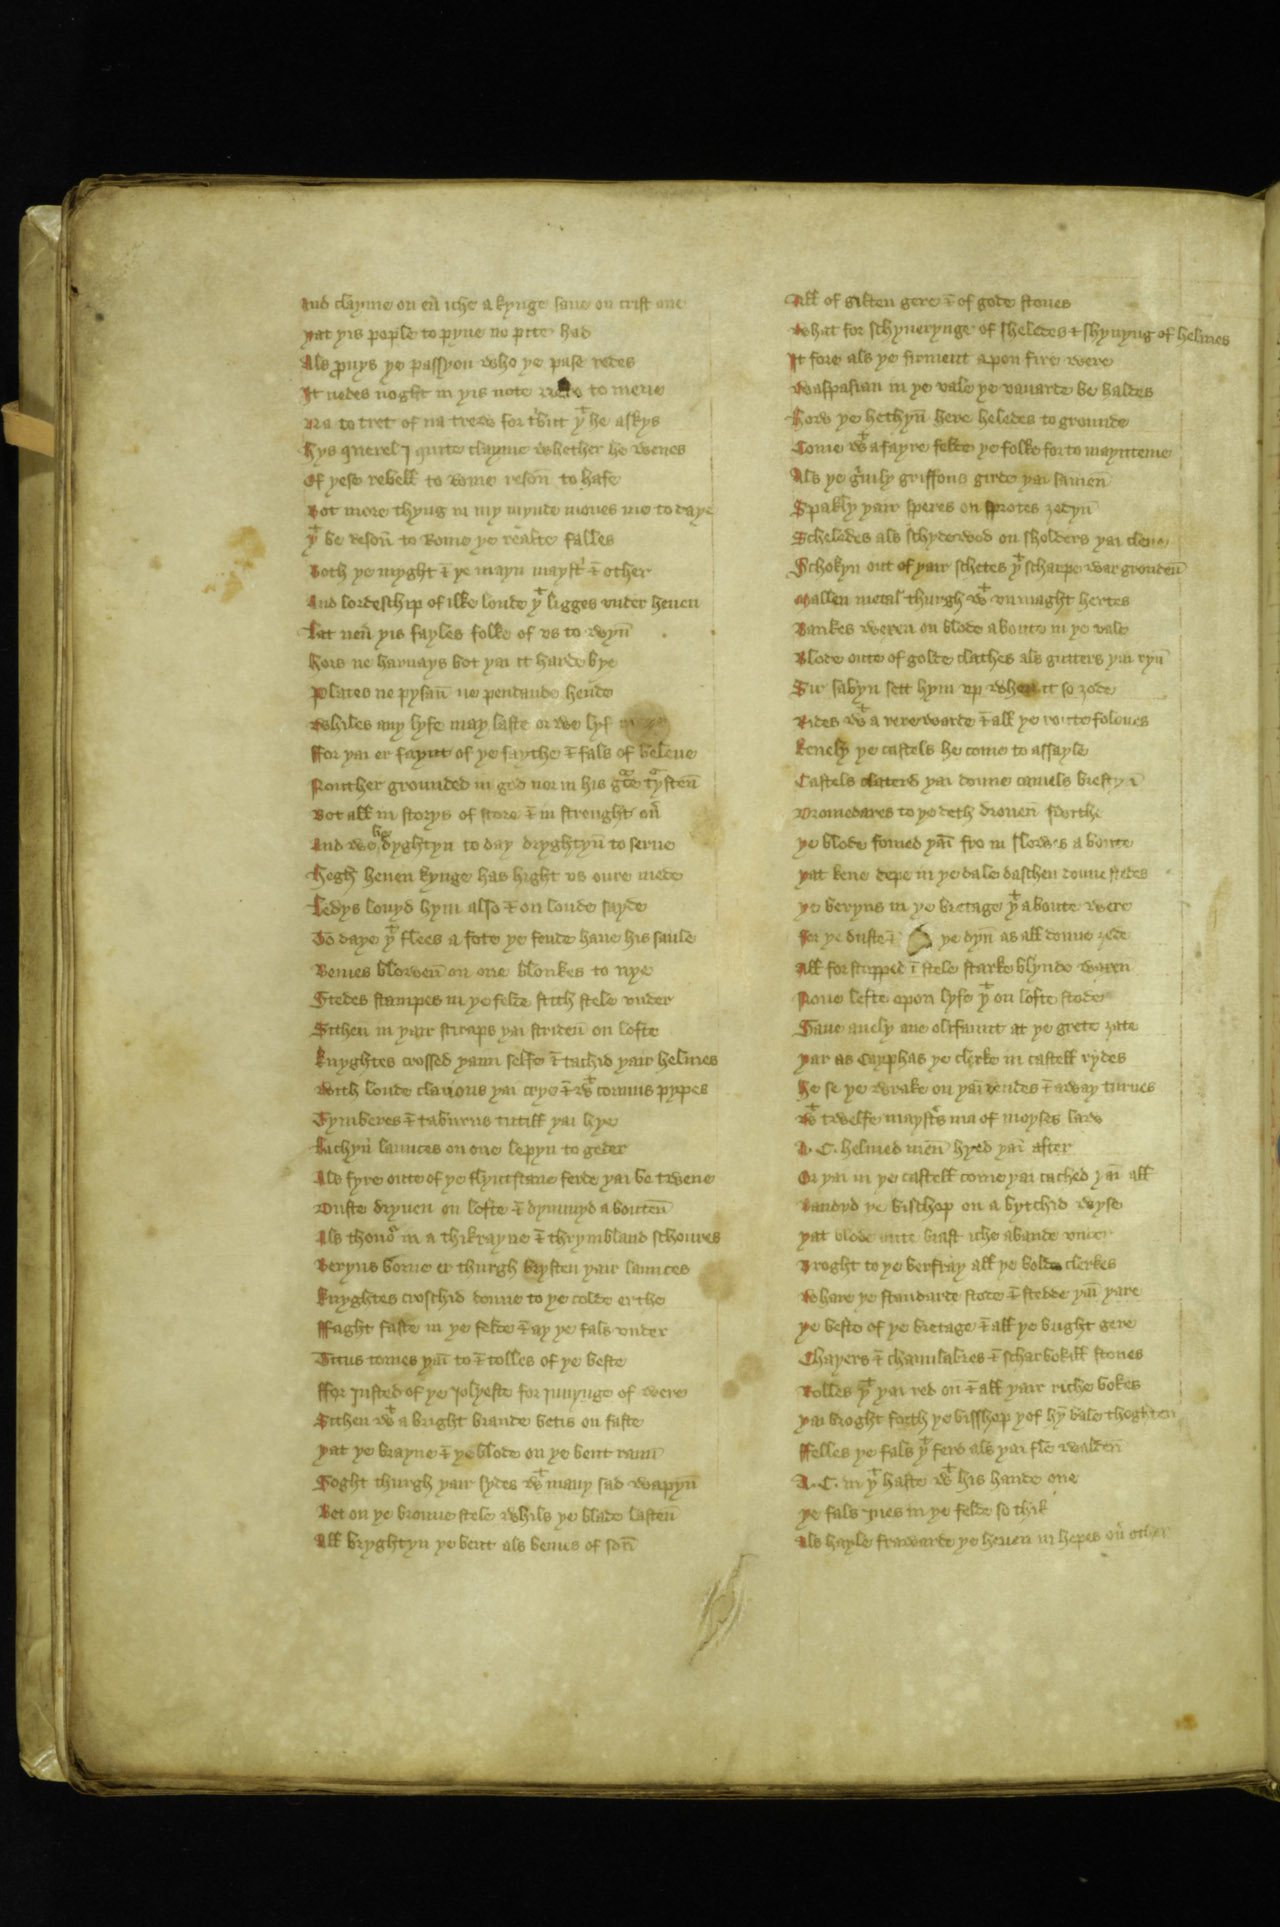 And clayme on eũ iche a kynge saue on crist one
yat yis pople to pyne no pite had
Als pruys ye passyon who ye pase redes
It nedes noght in yis note to meue
Na to tret of na trew for tbut yt he askys
hys querel I quite clayme whether he wenes
Of yese rebell to Rome resoñ to hafe
Bot more thyng in my mynde moues me to daye
yt be resoñ to Rome ye realte falles
Both ye myght & ye mayn mayst & other
And lordeschip of ilke londe yt ligges vnder heuen
Lat neũ yis fayles folke of vs to wyñ
hors ne harnays bot yai it harde bye
Plates ne pysañ ne pendande hende
Whiles any lyfe may laste or we lyf
ffor yai er faynt of ye faythe & fals of beleue
Nouther grounded in god nor in his gce tysteñ
Bot all in storys of store & in strenght oũ
And we be dyghtyn to day dryghtyñ to serue
hegh heuen kynge has hight vs oure mede
Ledys louyd hym also & on loude sayde
To daye yt flees a fote ye fende haue his saule
Bemes bloweñ on one blonkes to nye
Stedes stampes in ye felde stith stele vnder
Sithen in yair stiraps yai strideñ on lofte
knyghtes crossed yaim selfe & tachid yair helmes
With loude clarions yai crye & wt cormus pypes
Tymberes & taburns tutill yai hye
Lachyñ launces on one lepyn to geder
Als fyre oute of ye flynt stane ferde yai be twene
Duste dryuen on lofte & dymmyd a bouteñ
Als thonor in a thik rayne & thrymbland schoures
Beryns borne er thurgh brysten yair launces
knyghtes croschid doune to ye colde erthe
ffaght faste in ye felde & ay ye fals vnder
Titus tornes yaĩ to & tolles of ye beste
ffor justed of ye jolyeste for junynge of were
Sithen wt a bright brande betis on faste
yat ye brayne & ye blode on ye bent rann
Soght thurgh yair sydes wt many sad wapyñ
Bet on ye broune stele whils ye blade lasteñ
All bryghtyn ye bent als bemes of soñ
All of gilten gere & of gode stones
What for schynerynge of scheldes & shynyng of helmes
It fore als ye firment apon fire were
Waspasian in ye vale ye vauarte be haldes
how ye hethyñ here heledes to grounde
Come wt a fayre felde ye folke for to maynteme
Als ye gũily griffons girde yai sameñ
Spakly yair speres on sprotes zedyñ
Scheledes als schyderwod on sholders yai cleue
Schokyn out of yair schetes yt scharpe war grondeñ
Mallen metal thurgh wt vnmaght hertes
Bankes weren on blode aboute in ye vale
Blode oute of golde clathes als gutters yai ryñ
Sir sabyn sett hym vp when it so zode
Rides wt a rerewarde & all ye route folones
kenely ye castels he come to assayle
Castels claterd yai doune camels brestyñ
Dromedares to ye deth drouen swrthe
ye blode fomed yaĩ fro in flows a boute
yat kene depe in ye dale daschen doune stedes
ye beryns in ye bretage yt aboute were
for ye duste & ye dyñ as all doune zede
All for stopped ĩ stele starke blynde waren
None lefte opon lyfe yt on lofte stode
Saue anely ane olifaunt at ye grete zate
yar as Cayphas ye clerke in castell rydes
he se ye wrake on yaĩ wendes & away turnes
Wt twelfe maysts ma of moyses law
A. C. helmed meñ hyed yaĩ after
Or yai in ye castell come yai cached yaĩ all
Bandyd ye bischop on a bytchid wyse
yat blode oute brast iche abande vnder
Broght to ye berfray all ye bolde clerkes
Whare ye standarde stode & stedde yaĩ yare
ye beste of ye bretage & all ye bright gere
Chayers & chanulabres & scharbokill stones
Rolles yt yai red oñ & all yair riche bokes
yai broght forth ye bisshop yof hỹ bale thoghten
ffelles ye fals yt fero als yai fle waldeñ
A. C. in yt haste wt his hande one
ye fals ynes in ye felde so thik
Als hayle frawarde ye heuen in hepes oũ other